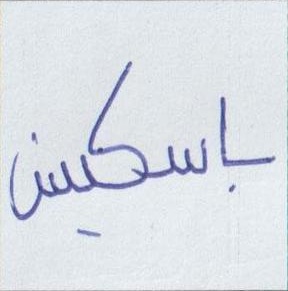 باسكين